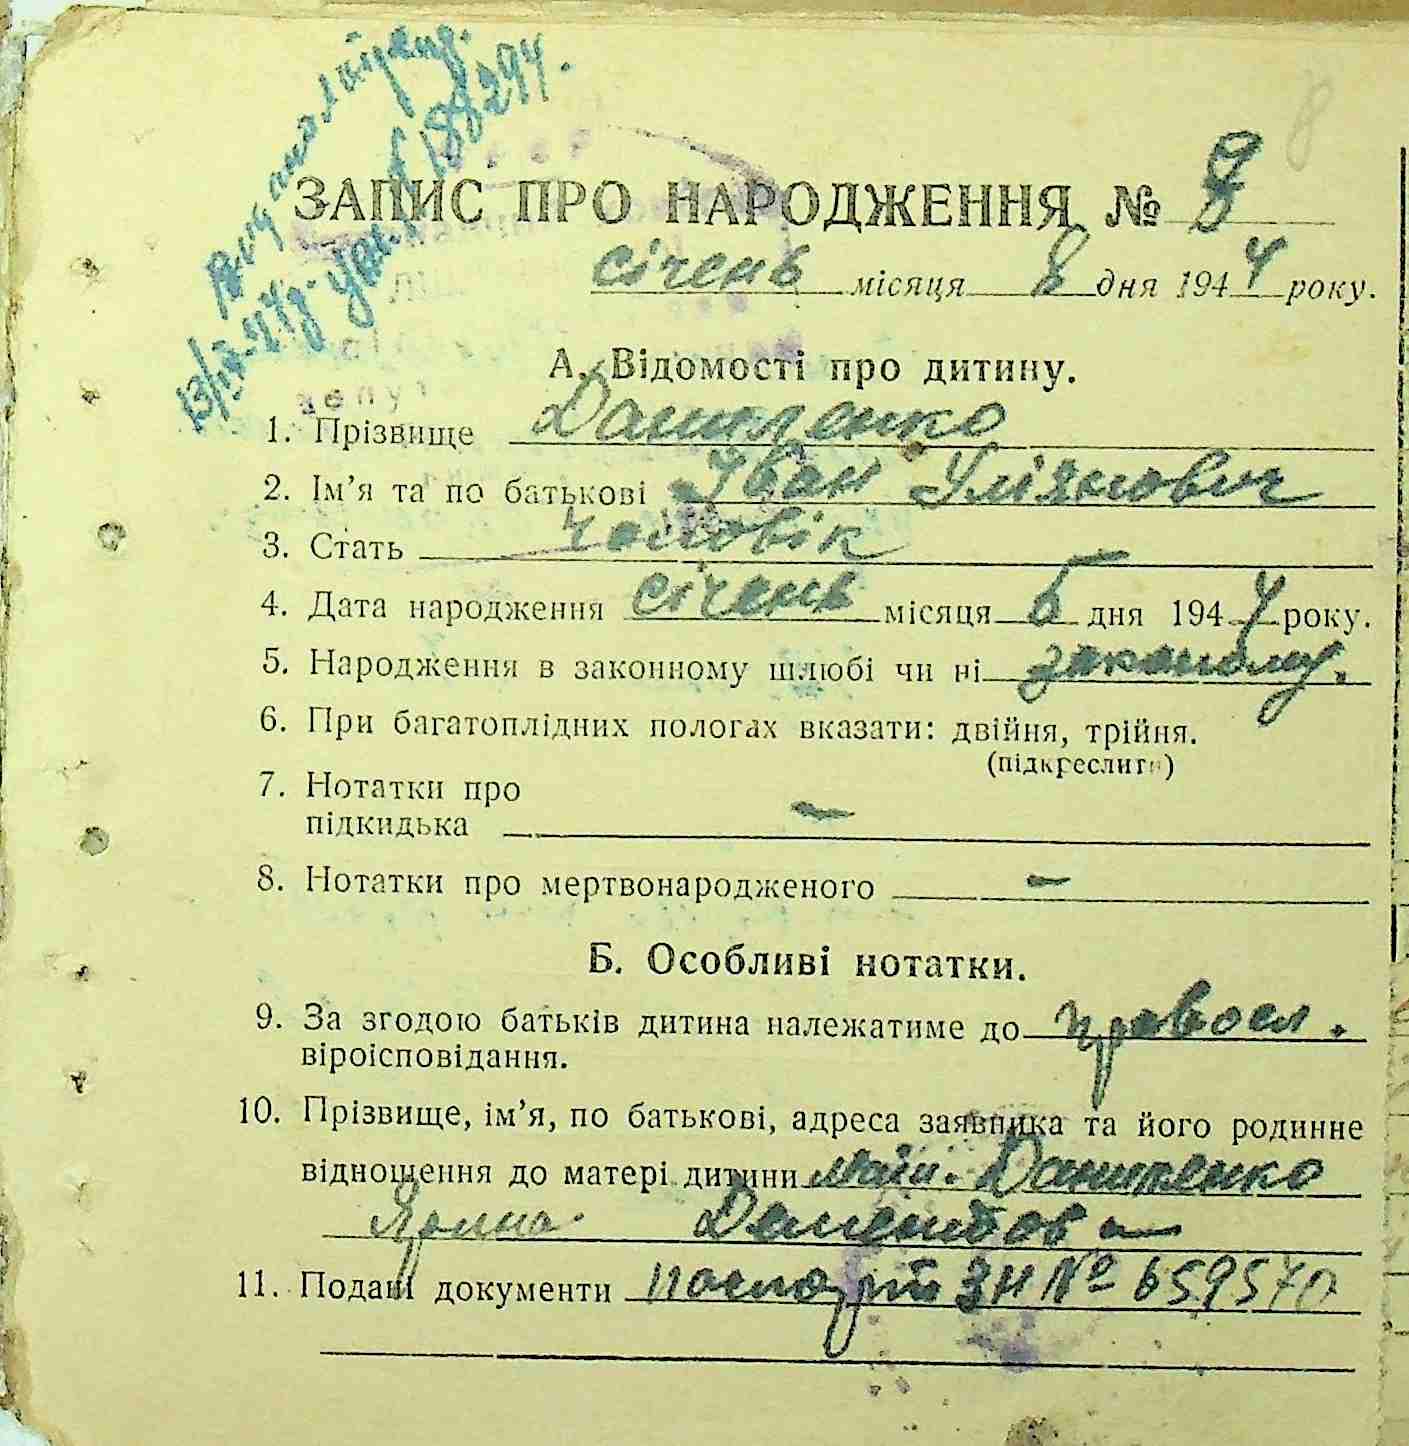 188294.
ЗАПИС ПРО НАРОДЖЕННЯ № 8
січень місяця 8 дня 1944 року.
А. Відомості про дитину.
1. Прізвище Даниленко
2. Ім’я та по батькові Іван Улянович
3. Стать чоловік
4. Дата народження січень місяця 6 дня 1944 року.
5. Народження в законному шлюбі чи ні законному.
6. При багатоплідних пологах вказати: двійня, трійня.
(підкреслити)
7. Нотатки про
підкидька —
8. Нотатки про мертвонародженого —
Б. Особливі нотатки.
9. За згодою батьків дитина належатиме до правосл.
віроісповідання.
10. Прізвище, ім’я, по батькові, адреса заявника та його родинне
відношення до матері дитини Даниленко
Ярина
11. Подані документи паспорт ЗН № 659570